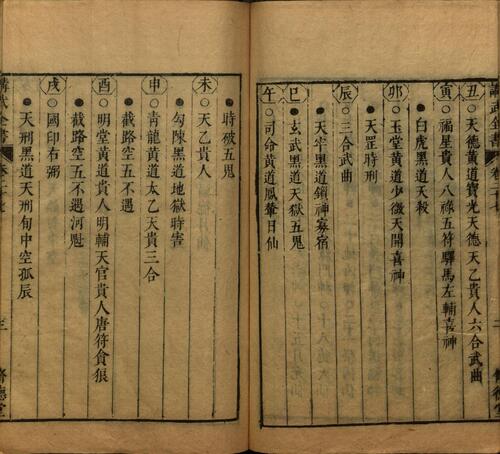 丑○天德黃道寶光天德天乙貴人六合武曲
寅○福星貴人八祿五符驛馬左輔喜神
●白虎黑道天殺
卯○玉堂黃道少微天開喜神
●天罡時刑
辰○三合武曲
●天牢黑道鎖神寡宿
巳●玄武黑道天獄五鬼
午○司命黃道鳳輦日仙
●時破五鬼
未○天乙貴人
●勾陳黑道地獄時害
申○青龍黃道太乙天貴三合
●截路空五不遇
酉○明堂黃道貴人明輔天官貴人唐符貪狼
●截路空五不遇河魁
戌○國印右弼
●天刑黑道天刑旬中空孤辰
講武全書
卷二十七
三